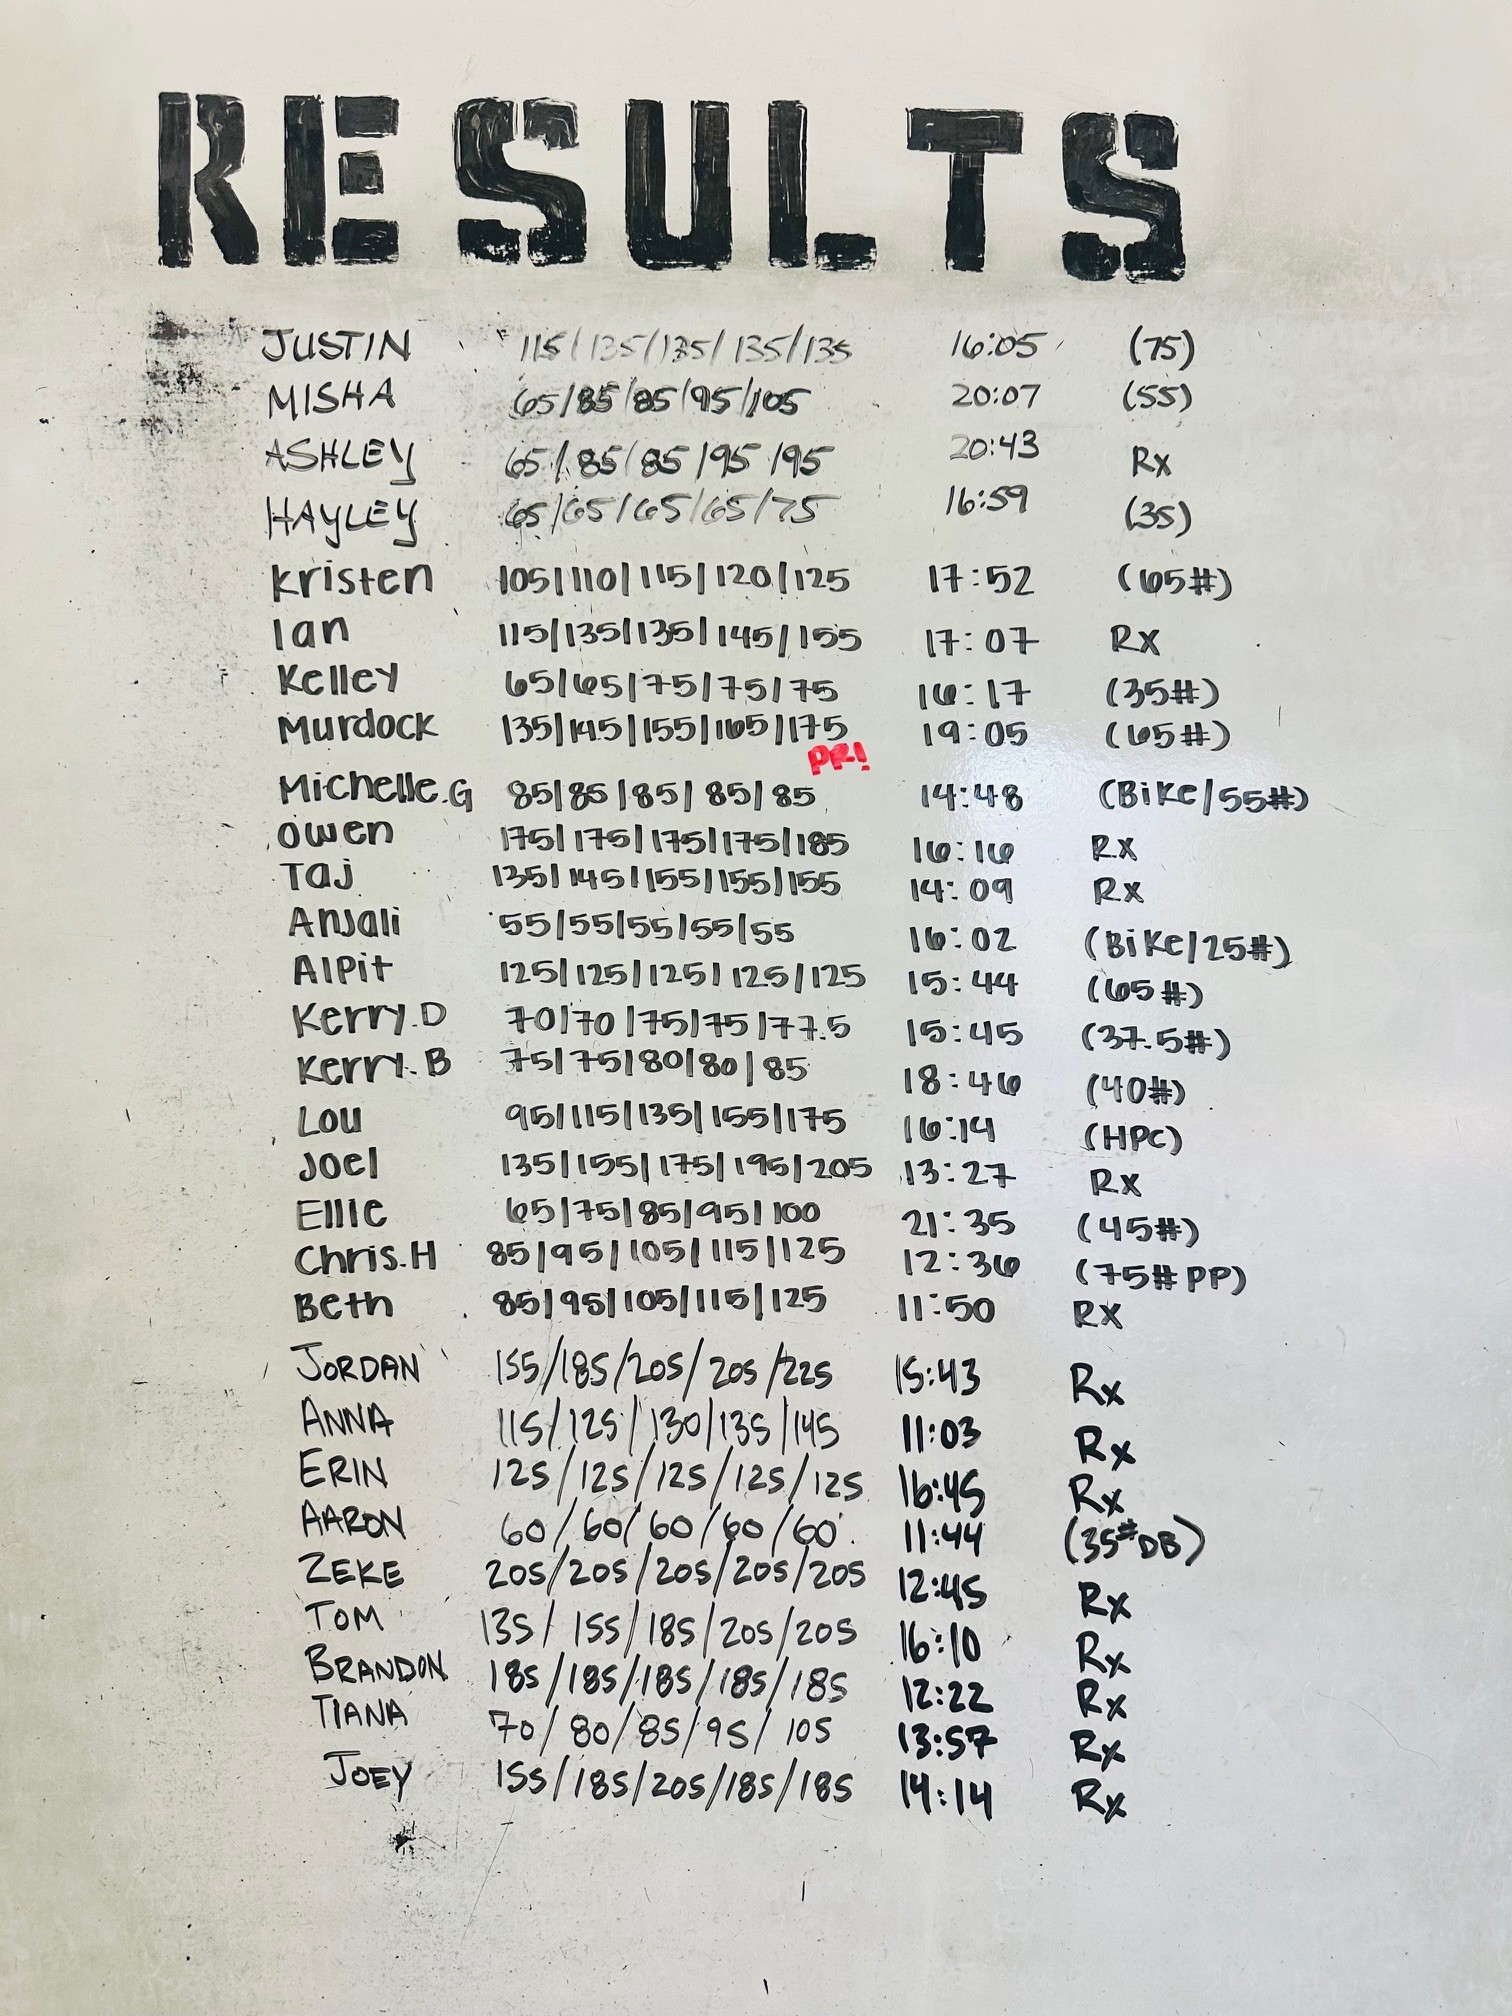 RESULTS
JUSTIN 115/135/135/135/135 16:05 (75)
MISHA 65/85/85/95/105 20:07 (55)
ASHLEY 65/85/85/95/95 20:43 Rx
HAYLEY 65/65/65/65/75 16:59 (35)
Kristen 105/110/115/120/125 17:52 (65#)
Ian 115/135/135/145/155 17:07 Rx
Kelley 65/65/75/75/75 16:17 (35#)
Murdock 135/145/155/165/175 19:05 (65#)
PR!
Michelle.G 85/85/85/85/85 14:48 (Bike/55#)
Owen 175/175/175/175/185 16:16 Rx
Taj 135/145/155/155/155 14:09 Rx
Anjali 55/55/55/55/55 16:02 (Bike/25#)
Alpit 125/125/125/125/125 15:44 (65#)
Kerry.D 70/70/75/75/77.5 15:45 (37.5#)
Kerry.B 75/75/80/80/85 18:46 (40#)
Lou 95/115/135/155/175 16:14 (HPC)
Joel 135/155/175/195/205 13:27 Rx
Ellie 65/75/85/95/100 21:35 (45#)
Chris.H 85/95/105/115/125 12:36 (75# PP)
Beth 85/95/105/115/125 11:50 Rx
JORDAN 155/185/205/205/225 15:43 Rx
ANNA 115/125/130/135/145 11:03 Rx
ERIN 125/125/125/125/125 16:45 Rx
AARON 60/60/60/60/60 11:44 (35# DB)
ZEKE 205/205/205/205/205 12:45 Rx
TOM 135/155/185/205/205 16:10 Rx
BRANDON 185/185/185/185/185 12:22 Rx
TIANA 70/80/85/95/105 13:57 Rx
JOEY 155/185/205/185/185 14:14 Rx